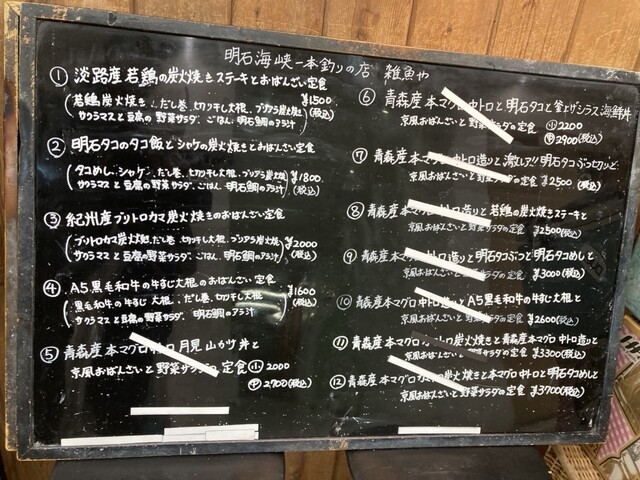 明石海峡一本釣りの店 雑魚や
① 淡路産若鶏の炭火焼きステーキとおばんざい定食
(若鶏炭火焼き、だし巻、切り干し大根、ブリアラ炭火焼
サクラマスと豆腐の野菜サラダ、ごはん、明石鯛のアラ汁) ¥1500(税込)
② 明石タコのタコ飯とシャケの炭火焼きとおばんざい定食
(タコめし、シャケ、だし巻、切り干し大根、ブリアラ炭火焼
サクラマスと豆腐の野菜サラダ、ごはん、明石鯛のアラ汁) ¥1800(税込)
③ 紀州産ブリトロカマ炭火焼きのおばんざい定食
(ブリトロカマ炭火焼、だし巻、切り干し大根、ブリアラ炭火焼
サクラマスと豆腐の野菜サラダ、ごはん、明石鯛のアラ汁) ¥2000(税込)
④ A5黒毛和牛の牛すじ大根のおばんざい定食
(黒毛和牛の牛すじ大根、だし巻、切り干し大根、
サクラマスと豆腐の野菜サラダ、明石鯛のアラ汁) ¥1600(税込)
⑤ 青森産本マグロ中トロ月見山かけ丼と
京風おばんざいと野菜サラダの定食 小 2000
中 2700(税込)
⑥ 青森産本マグロ中トロと明石タコと釜上げシラス海鮮丼
京風おばんざいと野菜サラダの定食 小 2200
中 2900(税込)
⑦ 青森産本マグロ中トロ造りと激レア!明石タコぶつセットと
京風おばんざいと野菜サラダの定食 ¥2500(税込)
⑧ 青森産本マグロ中トロ造りと若鶏の炭火焼きステーキと
京風おばんざいと野菜サラダの定食 ¥2500(税込)
⑨ 青森産本マグロ中トロ造りと明石タコぶつと明石タコめしと
京風おばんざいと野菜サラダの定食 ¥3000(税込)
⑩ 青森産本マグロ中トロ造りとA5黒毛和牛の牛すじ大根と
京風おばんざいと野菜サラダの定食 ¥2600(税込)
⑪ 青森産本マグロカマトロ炭火焼きと青森産本マグロ中トロ造りと
京風おばんざいと野菜サラダの定食 ¥3300(税込)
⑫ 青森産本マグロカマトロ炭火焼きと本マグロ中トロと明石タコめしと
京風おばんざいと野菜サラダの定食 ¥3700(税込)